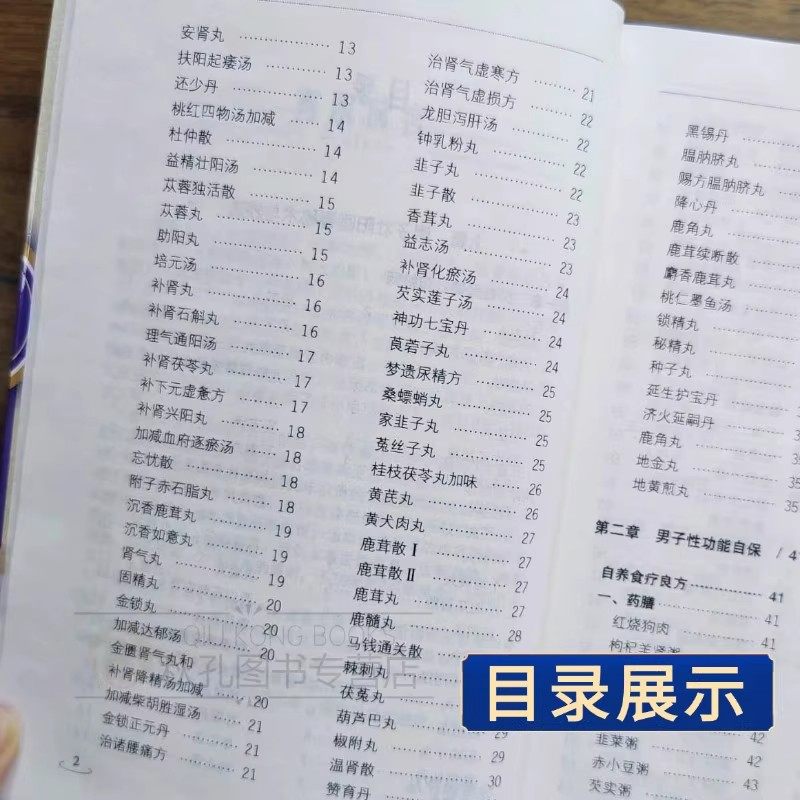 安肾丸 13
扶阳起痿汤 13
还少丹 13
桃红四物汤加减 14
杜仲散 14
益精壮阳汤 14
苁蓉独活散 15
苁蓉丸 15
助阳丸 15
培元汤 16
补肾丸 16
补肾石斛丸 16
理气通阳汤 17
补肾茯苓丸 17
补下元虚惫方 17
补肾兴阳丸 18
加减血府逐瘀汤 18
忘忧散 18
附子赤石脂丸 18
沉香鹿茸丸 19
沉香如意丸 19
肾气丸 19
固精丸 20
金锁丸 20
加减达郁汤 20
金匮肾气丸和
补肾降精汤加减 20
加减柴胡胜湿汤 21
金锁正元丹 21
治诸腰痛方 21
2
治肾气虚寒方 21
治肾气虚损方 22
龙胆泻肝汤 22
钟乳粉丸 22
韭子丸 22
韭子散 23
香茸丸 23
益志汤 23
补肾化瘀汤 24
芡实莲子汤 24
神功七宝丹 24
莨菪子丸 24
梦遗尿精方 25
桑螵蛸丸 25
家韭子丸 25
菟丝子丸 25
桂枝茯苓丸加味 26
黄芪丸 26
黄犬肉丸 27
鹿茸散Ⅰ 27
鹿茸散Ⅱ 27
鹿茸丸 27
鹿髓丸 28
马钱通关散
棘刺丸
茯菟丸
葫芦巴丸
椒附丸 29
温肾散 30
赞育丹
黑锡丹
腽肭脐丸
赐方腽肭脐丸
降心丹
鹿角丸
鹿茸续断散
麝香鹿茸丸
桃仁墨鱼汤
锁精丸
秘精丸
种子丸
延生护宝丹
济火延嗣丹
鹿角丸
地金丸
地黄煎丸 35
第二章 男子性功能自保 / 41
自养食疗良方 41
一、药膳 41
红烧狗肉 41
枸杞羊肾粥
韭菜粥 42
赤小豆粥 42
芡实粥 43
目录展示